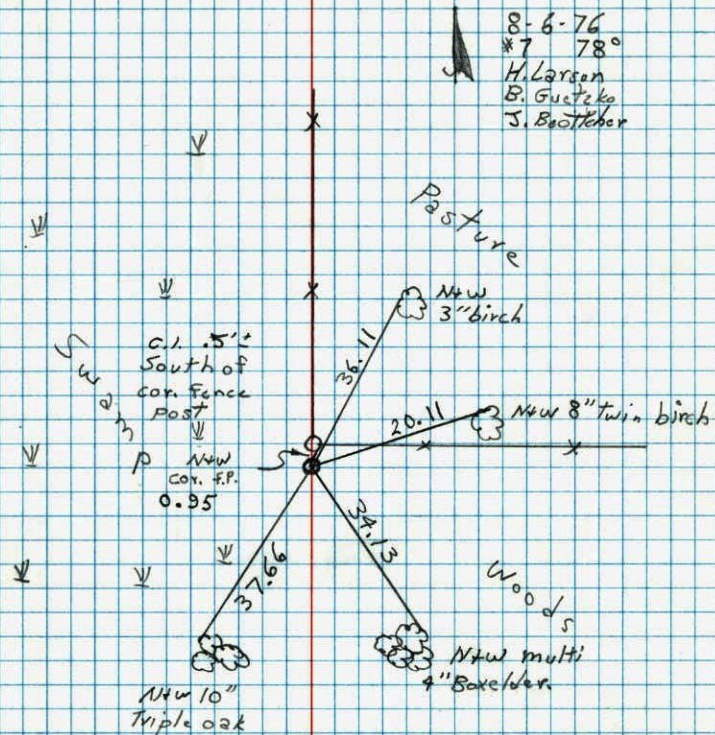 8-6-76
#7 78°
H. Larson
B. Guetzko
J. Boettcher
Pasture
N+W
3" birch
36.11
C.I. .5'±
South of
cor. fence
post
Swamp
N+W 8" twin birch
20.11
N+W
cor. f.P.
0.95
34.13
37.66
Woods
N+W multi
4" Boxelder.
N+W 10"
Triple oak